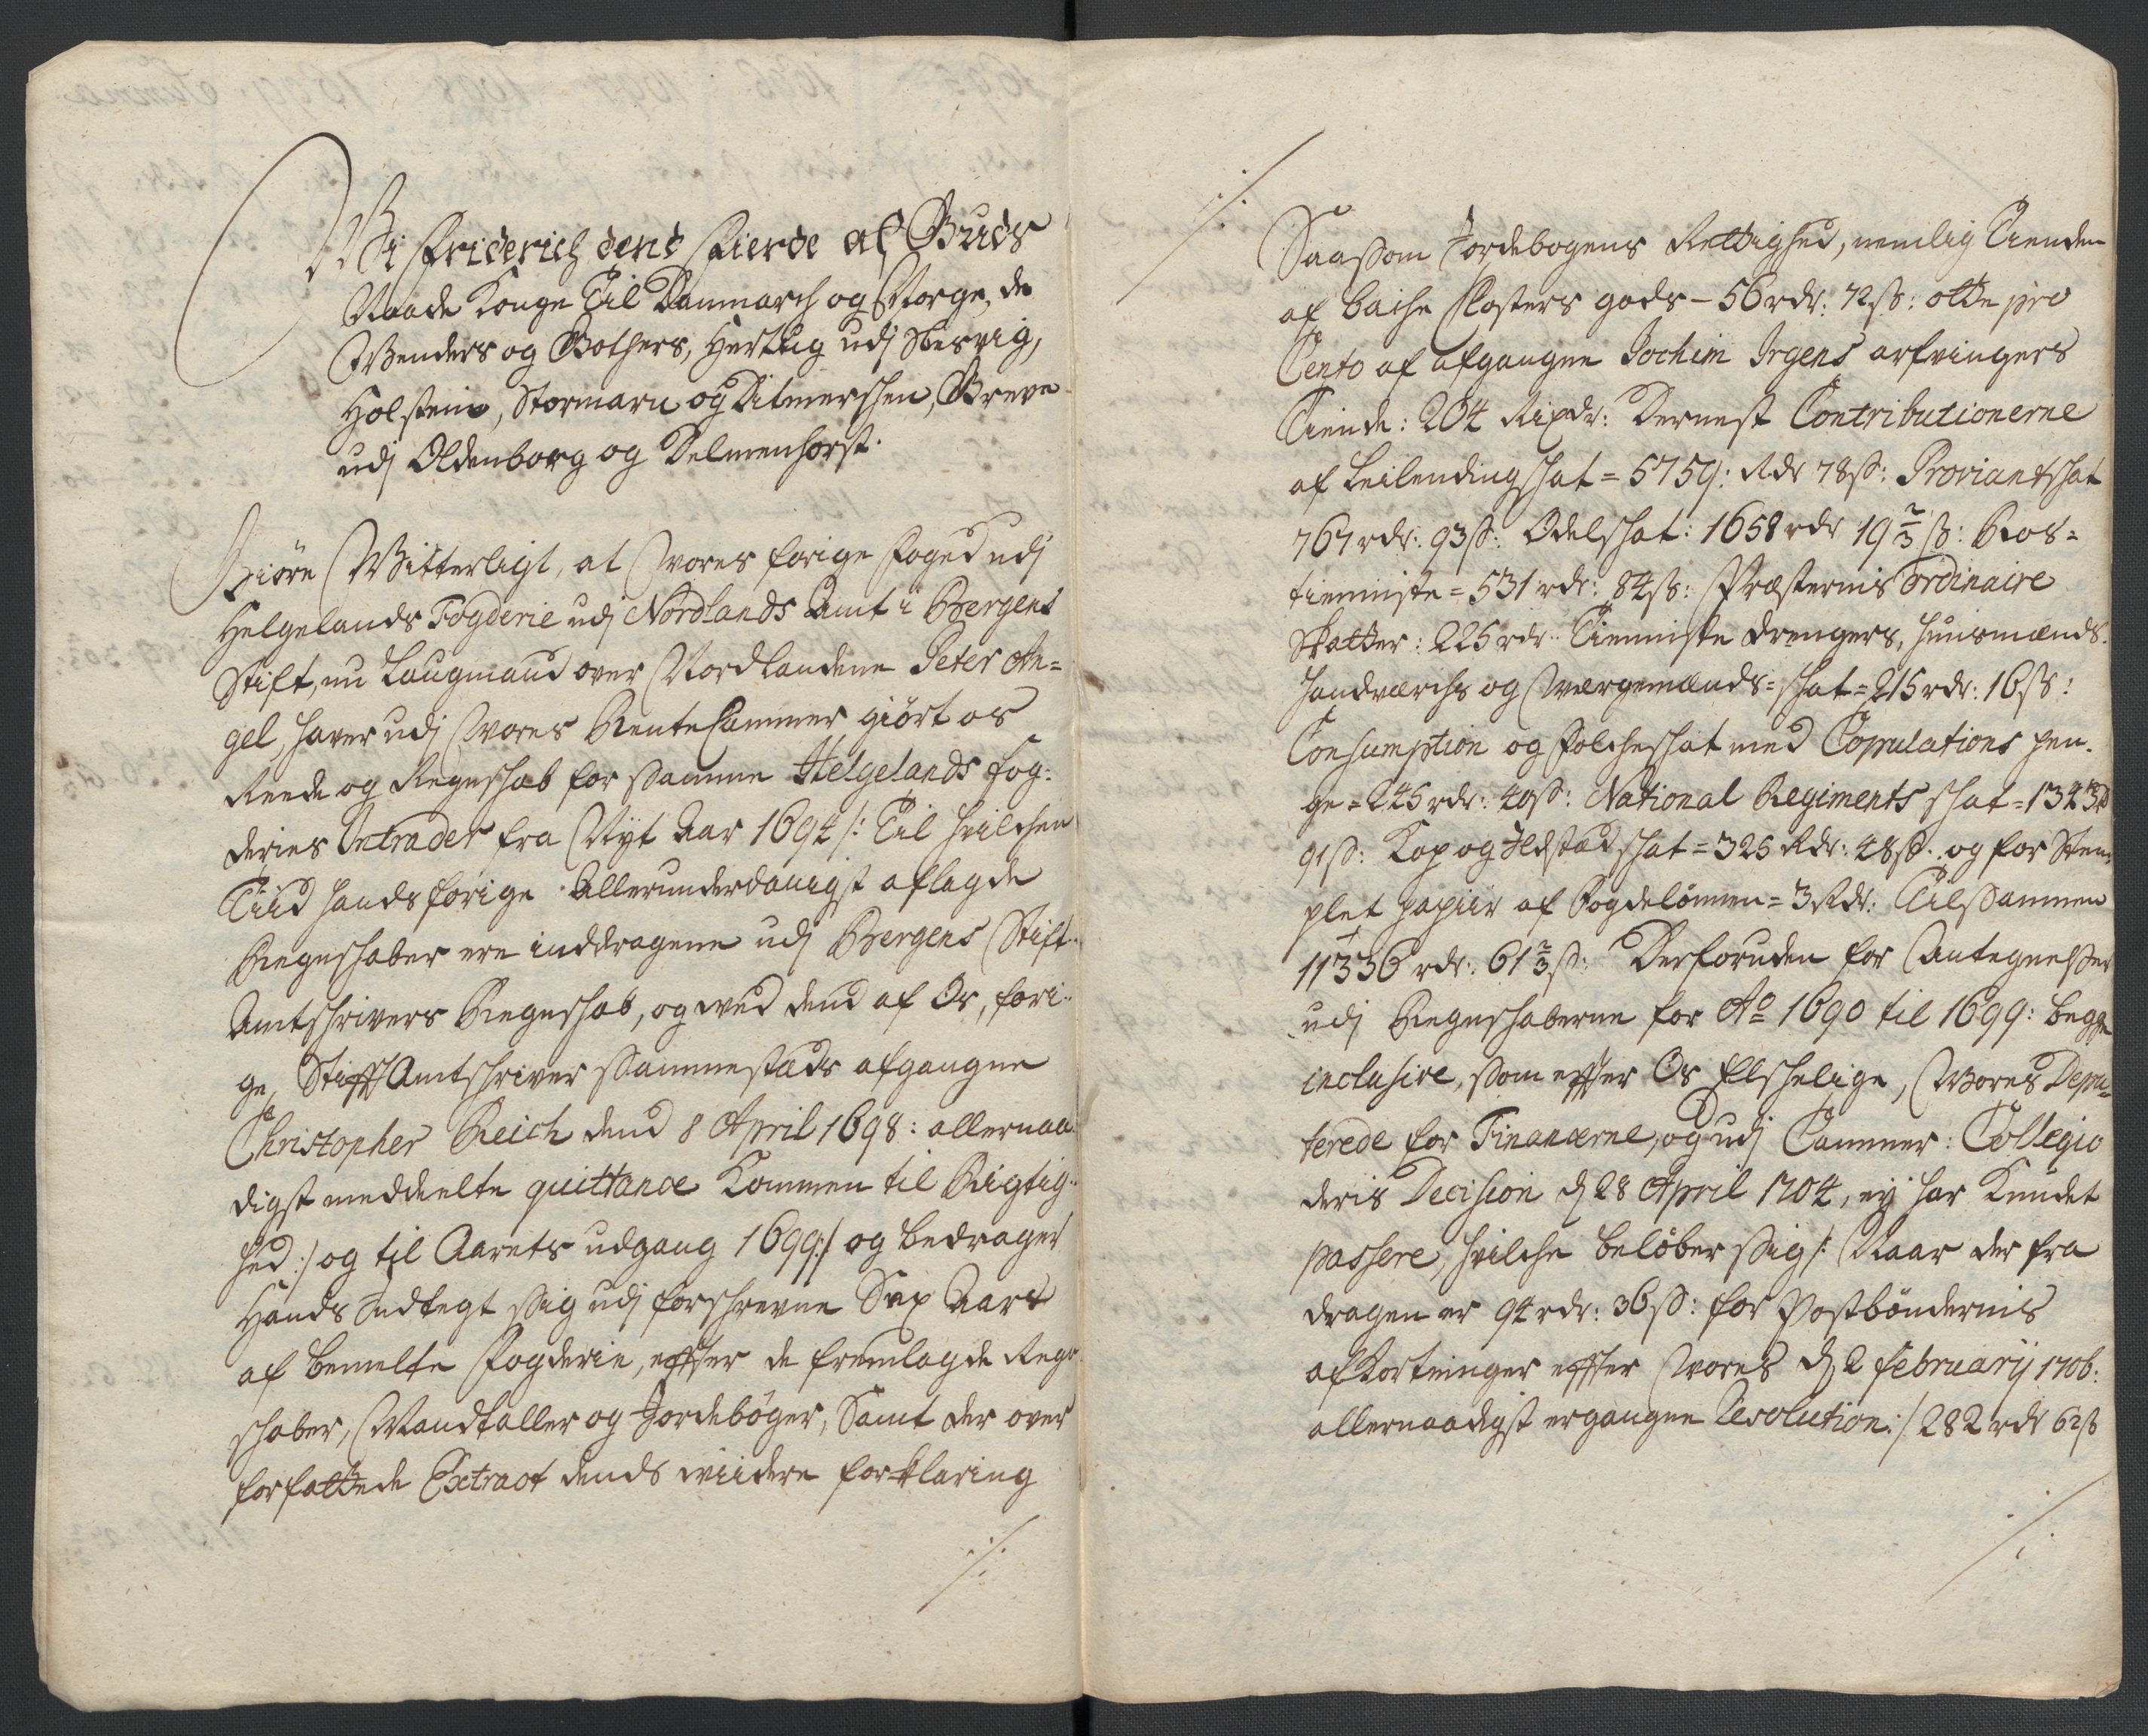 Wi Friderich dend Fierde af Guds
Naade Konge Til Danmarch og Norge, de
Wenders og Gothers, Hertug udj Slesvig,
Holstein, Stormarn og Ditmerschen, Greve
udj Oldenborg og Delmenhorst.
Giöre Witterligt, at Wores forige Foged udj
Helgelands Fogderie udj Nordlands Amt i Bergens
Stift, nu Laugmand over Nordlandene Peter An=
gel, haver udj Wores RenteCammer giört os
Reede og Regnschab for Samme Helgelands Fog:
deries Intrader fra Nyt Aar 1694 /: Til hvilchen
Tiid hands forige Allerunderdanigst aflagde
Regnschaber ere inddragene udj Bergens Stift..
Amtschrivers Regnschab, og ved dend af Os, fori..
ge, StifftAmtschriver Sammestæds afgangne
Christopher Reich dend 8 April 1698: allernaa
digst meddeelte quittance Kommen til Rigtig..
hed :/ og til Aarets udgang 1699:/ og bedrager
Hands Indtegt Sig udj forschrevne Sex Aars
af bemelte Fogderie, effter de fremlagde Regn
schaber, Mandtaller og Jordebøger, Samt der over
forfattede Extract dends viidere forklaring
./.
./.
Saasom Jordebogens Rettighed, nemlig Tienden
af Bache Closters gods - 56 rdr: 72 ß: otte pro
Cento af afgangne Jochim Irgens arfvingers
Tiende: 204 Rixdr: Dernest Contributionerne
af Leilending schat = 5759: Rdr 78 ß: Proviantschat
767 rdr: 93 ß: Odelschat: 1658 rdr 19 2/3 ß: Ros=
tienniste = 531 rdr: 84 ß: Præsternis ordinaire
Skatter: 225 rdr: Tienniste drengers, huusmænds
handværchs og Wærgemænds= schat = 215 rdr: 16 ß:
Consumption og Folcheschat med Copulations pen.
ge = 245 rdr: 40 ß: National Regiments schat = 1343 rd
91 ß: Kop og Ildstæd schat = 325 Rdr: 48 ß. og for Stem
plet papiir af Fogdelönnen = 3 Rdr: Tilsammen
11336 rdr: 61 2/3 ß: Derforuden for Antegnelser
udj Regnschaberne for Ao 1690 til 1699: begge
inclusive, som effter Os Elschelige, Wores Depu=
terede for Financerne, og udj Cammer: Collegio
deris Decision d 28 April 1704, ey har Kundet
passere, hvilche beløber Sig /: Naar der fra
dragen er 94 rdr: 36 ß: for Postböndernis
afkortninger effter Wores d 2 february 1706:
allernaadigst ergangne Resolution :/ 282 rdr 62 ß
./.